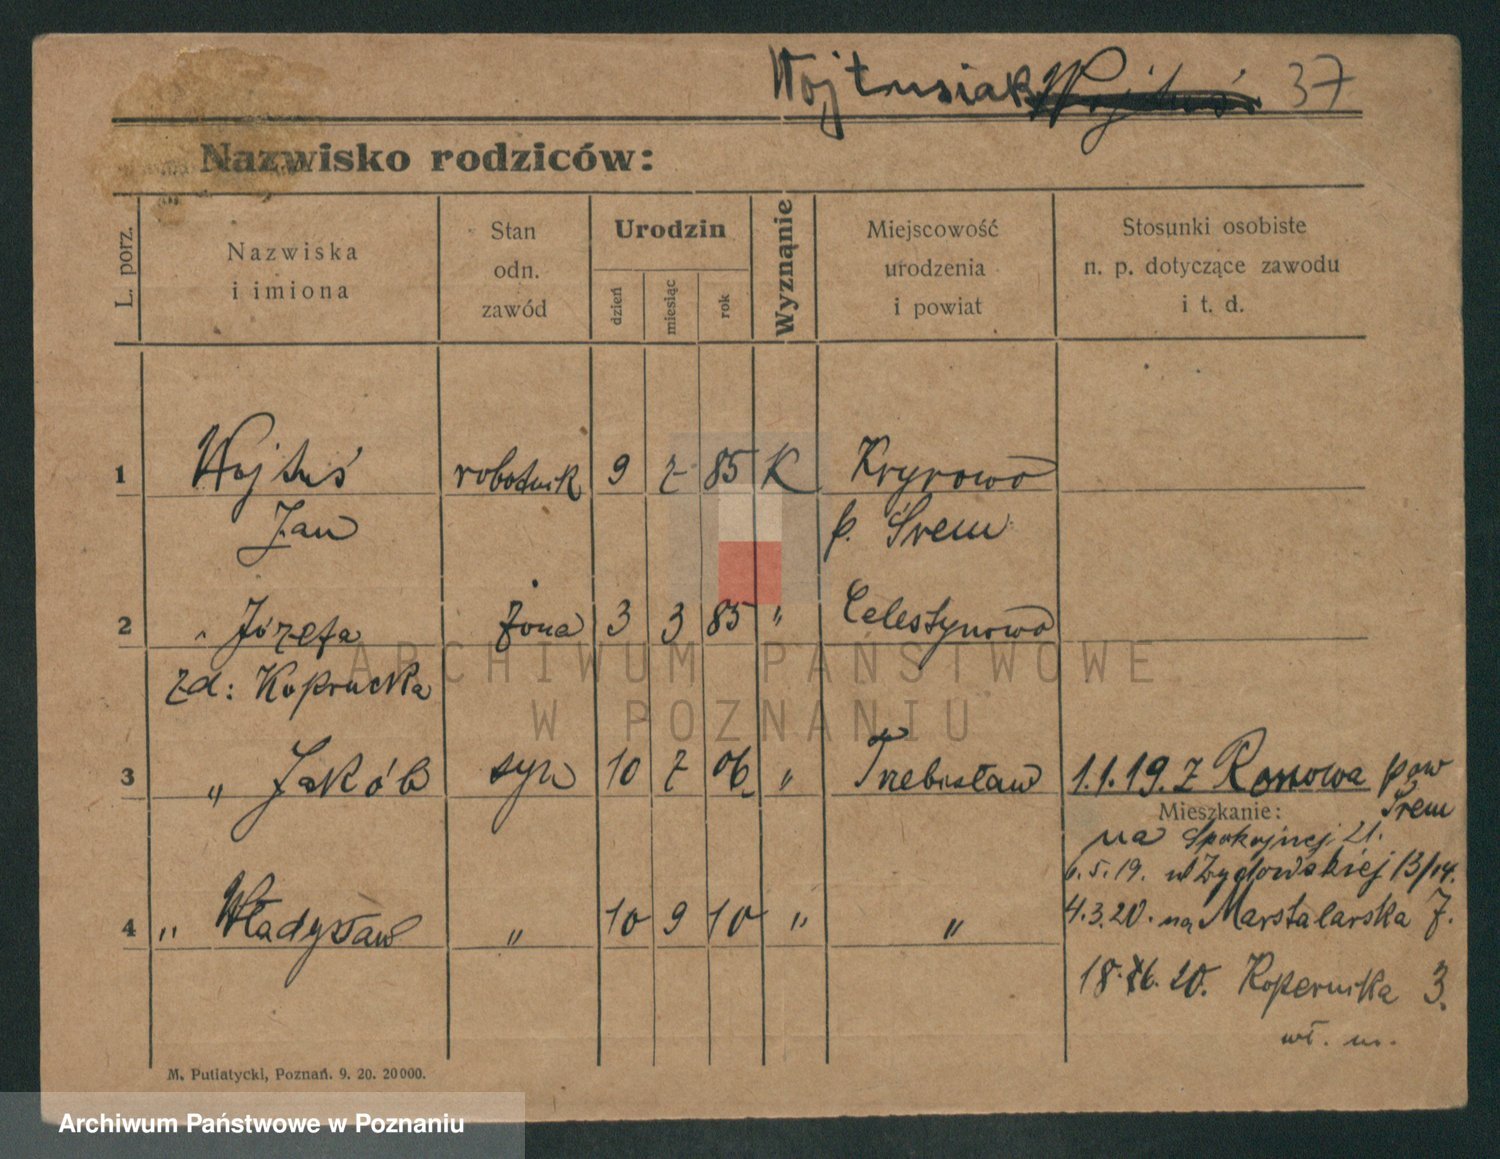 Wojtusiak Wojtuś 37
Nazwisko rodziców:
L. porz.
Nazwiska
i imiona
Stan
odn.
zawód
Urodzin
dzień
miesiąc
rok
Wyznąnie
Miejscowość
urodzenia
i powiat
Stosunki osobiste
n. p. dotyczące zawodu
i t. d.
1 Wojtuś robotnik 9 2 85 K Kryrowo
Jan p. Śrem
2 " Józefa żona 3 3 85 " Celestynowo
zd: Koprucka
3 " Jakób syn 10 7 06 " Trzebisław 1.1.19. z Ronowa pow
Śrem
Mieszkanie:
na Spokojnej 21.
6.5.19. ul Żydowskiej 13/14.
4 " Władysław " 10 9 10 " " 4.3.20. na Marstalarska 7.
18. 20. Kopernika 3.
wł. m.
M. Putiatycki, Poznań. 9. 20. 20000.
ARCHIWUM PAŃSTWOWE
W POZNANIU
Archiwum Państwowe w Poznaniu